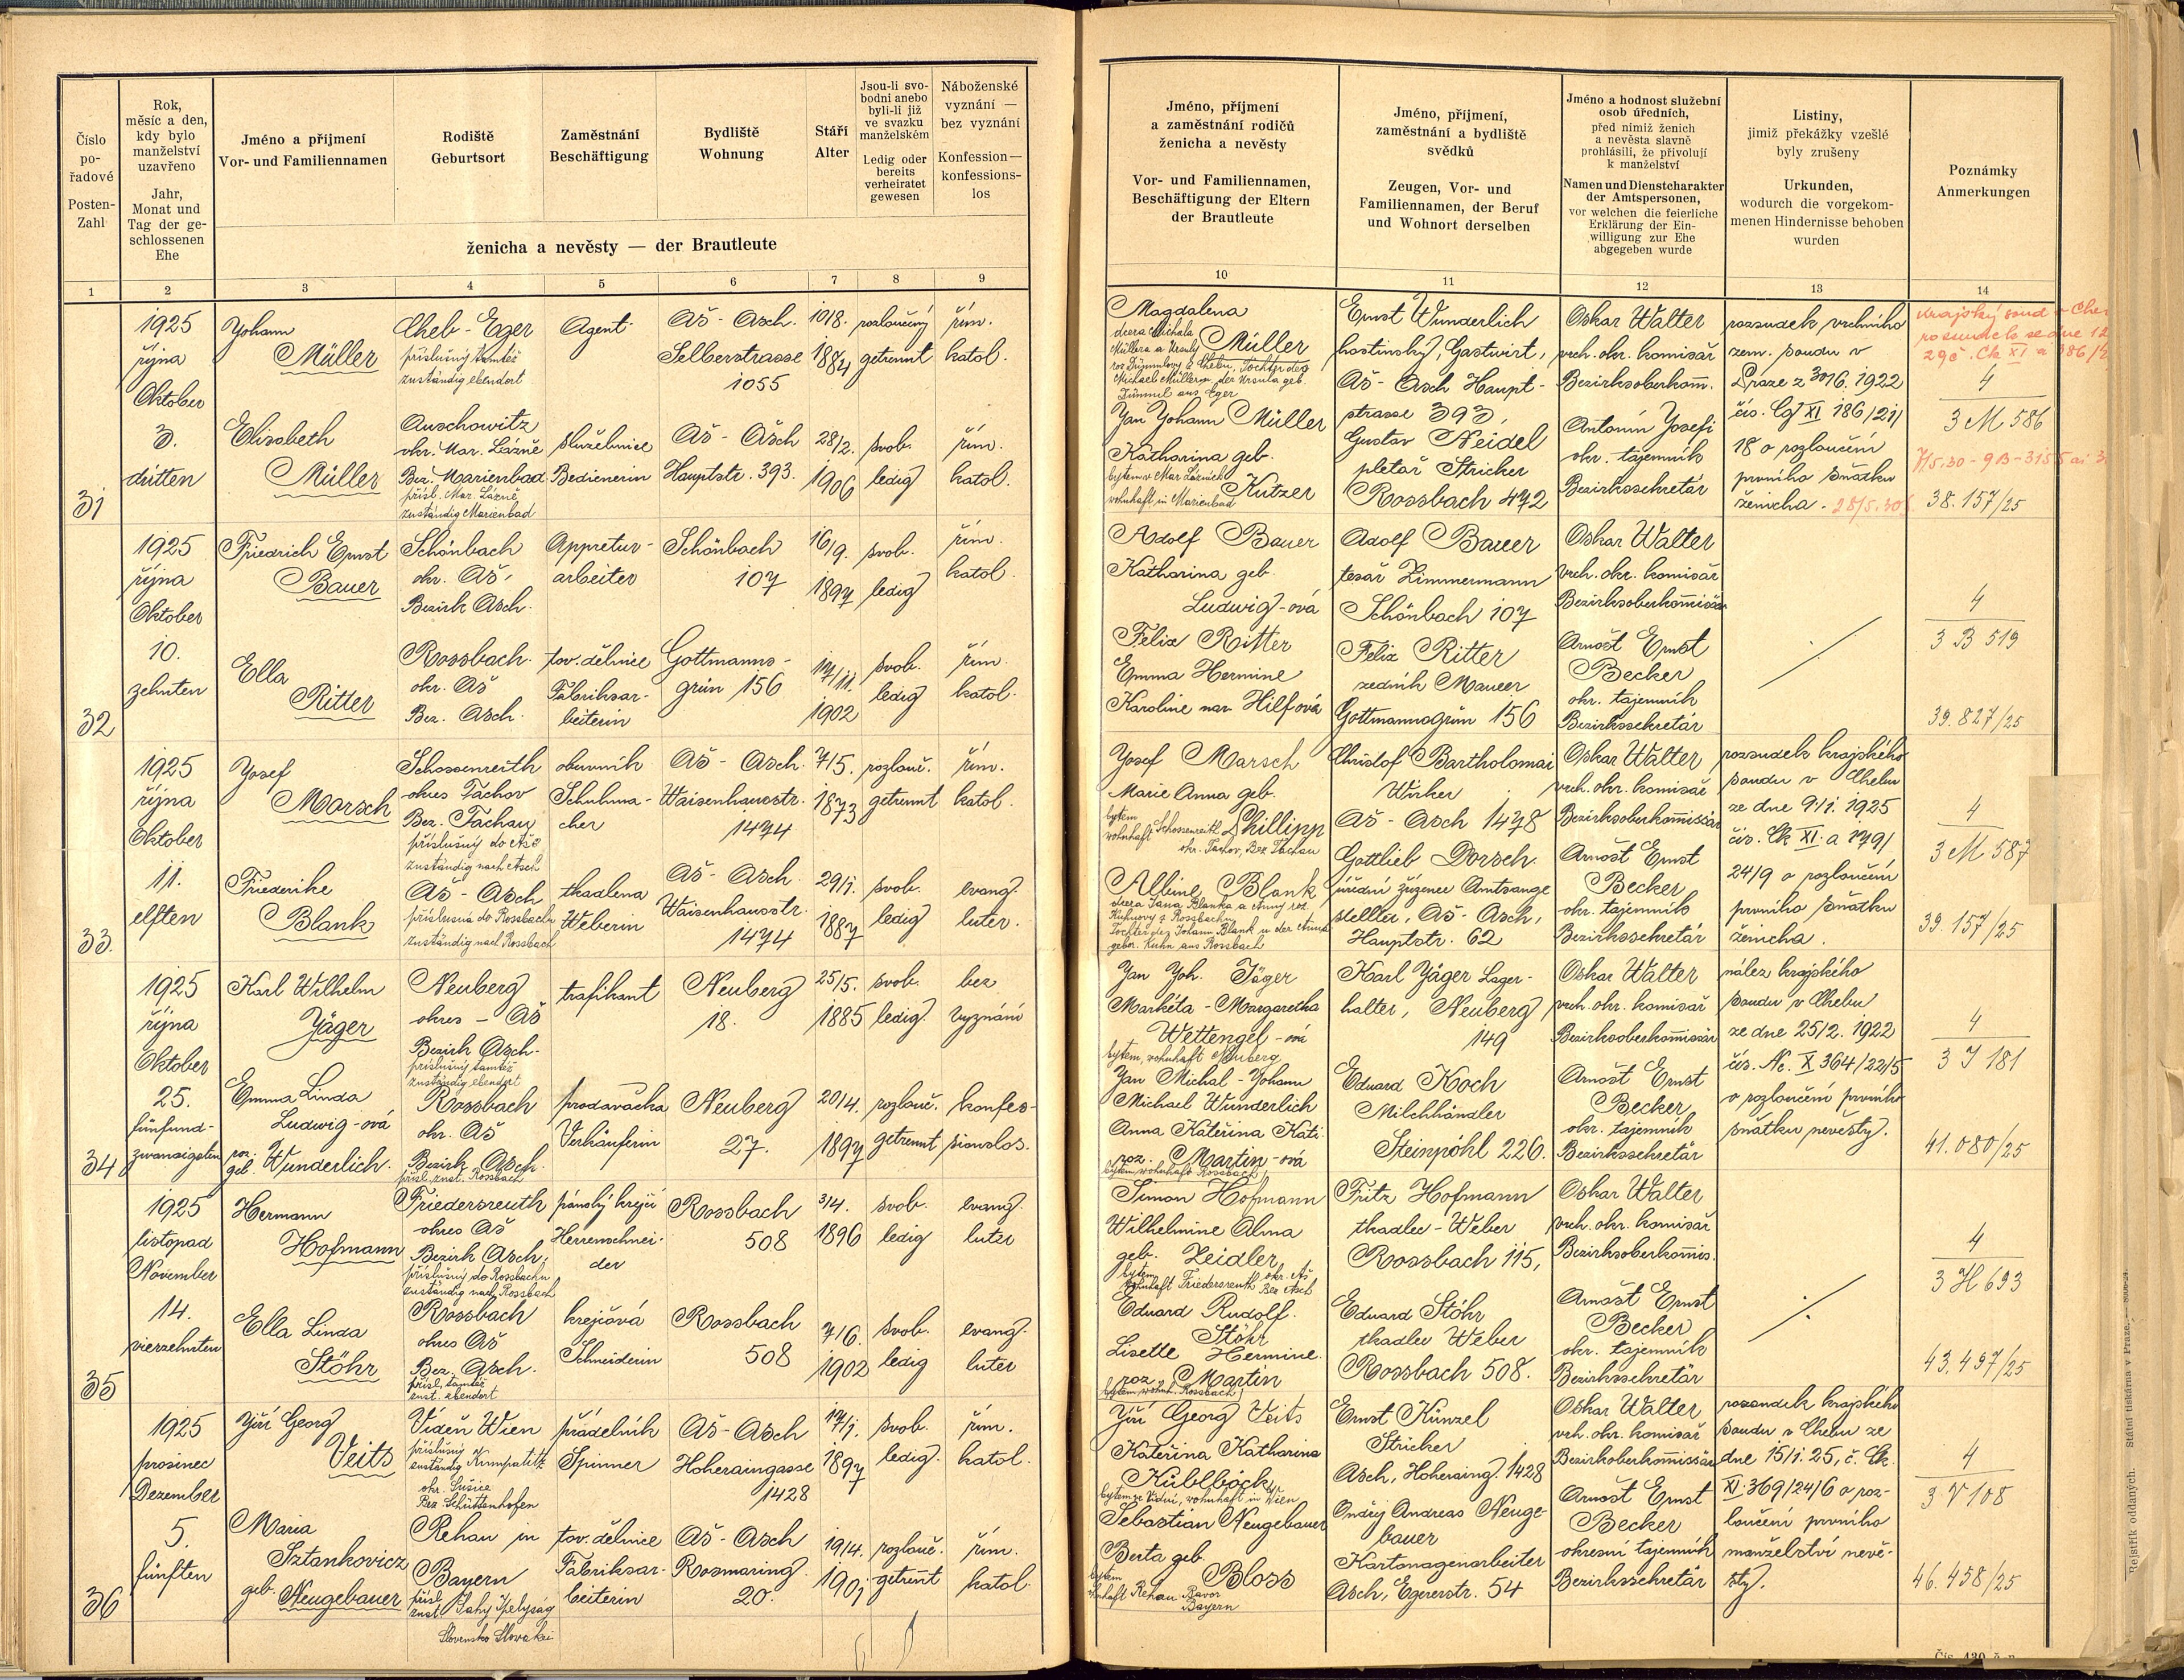 Číslo
po-
řadové
Posten-
Zahl
Rok,
měsíc a den,
kdy bylo
manželství
uzavřeno
Jahr,
Monat und
Tag der ge-
schlossenen
Ehe
Jméno a příjmení
Vor- und Familiennamen
Rodiště
Geburtsort
Zaměstnání
Beschäftigung
Bydliště
Wohnung
Stáří
Alter
Jsou-li svo-
bodni anebo
byli-li již
ve svazku
manželském
Ledig oder
bereits
verheiratet
gewesen
Náboženské
vyznání —
bez vyznání
Konfession —
konfessions-
los
ženicha a nevěsty — der Brautleute
1 2 3 4 5 6 7 8 9
1925
října
Oktober
3.
dritten
31
Johann
Müller
Cheb - Eger
příslušný tamtéž
zuständig ebendort
Agent
Aš - Asch.
Selberstrasse
1055
10/8.
1884
rozloučený
getrennt
řím.
katol.
Elisabeth
Müller
Auschowitz
okr. Mar. Lázně
Bez. Marienbad
přísl. Mar. Lázně
zuständig Marienbad
služebnice
Bedienerin
Aš - Asch
Hauptstr. 393.
28/2.
1906
svob.
ledig
řím.
katol.
1925
října
Oktober
10.
zehnten
32
Friedrich Ernst
Bauer
Schönbach
okr. Aš,
Bezirk Asch.
Appretur-
arbeiter
Schönbach
107
16/9.
1897
svob.
ledig
řím.
katol.
Ella
Ritter
Rossbach.
okr. Aš
Bez. Asch.
tov. dělnice
Fabriksar-
beiterin
Gottmanns-
grün 156
17/11.
1902
svob.
ledig
řím.
katol.
1925
října
Oktober
11.
elften
33.
Josef
Marsch
Schossenreith
okres Tachov
Bez. Tachau
příslušný do Aše
zuständig nach Asch
obuvník
Schuhma-
cher
Aš - Asch.
Waisenhausstr.
1474
7/5.
1873
rozlouč.
getrennt
řím.
katol.
Friederike
Blank
Aš - Asch
příslušná do Rossbachu
zuständig nach Rossbach
tkadlena
Weberin
Aš - Asch.
Waisenhausstr.
1474
29/1.
1887
svob.
ledig
evang.
luter.
1925
října
Oktober
25.
fünfund-
zwanzigsten
34
Karl Wilhelm
Jäger
Neuberg
okres - Aš
Bezirk Asch.
příslušný tamtéž
zuständig ebendort
trafikant
Neuberg
18.
25/5.
1885
svob.
ledig.
bez
vyznání
Emma Linda
Ludwig-ová
roz.
geb. Wunderlich.
Rossbach
okr. Aš
Bezirk Asch.
přísl. zust. Rossbach
prodavačka
Verkäuferin
Neuberg
27.
20/4.
1897
rozlouč.
getrennt
konfes-
sionslos.
1925
listopad
November
14.
vierzehnten
35
Hermann
Hofmann
Friedersreuth
okres Aš
Bezirk Asch,
příslušný do Rossbachu
zuständig nach Rossbach
pánský krejčí
Herrenschnei-
der
Rossbach
508
3/4.
1896
svob.
ledig
evang.
luter
Ella Linda
Stöhr
Rossbach
okres Aš
Bez. Asch.
přísl. tamtéž
zust. ebendort
krejčová
Schneiderin
Rossbach
508
7/6.
1902
svob.
ledig
evang.
luter
1925
prosinec
Dezember
5.
fünften
36
Jiří Georg
Veits
Vídeň Wien
příslušný
zuständig Kumpatitz
okr. Sušice
Bez. Schüttenhofen
přádelník
Spinner
Aš - Asch
Hoheraingasse
1428
17/1.
1897
svob.
ledig.
řím.
katol.
Maria
Sztankovicz
geb. Neugebauer
Rehau in
Bayern
přísl.
zust. Šahy Ipelyság
Slovensko Slowakei
tov. dělnice
Fabriksar-
beiterin
Aš - Asch
Rosmaring.
20.
19/4.
1901
rozlouč.
getrennt
řím.
katol.
Jméno, příjmení
a zaměstnání rodičů
ženicha a nevěsty
Vor- und Familiennamen,
Beschäftigung der Eltern
der Brautleute
Jméno, příjmení,
zaměstnání a bydliště
svědků
Zeugen, Vor- und
Familiennamen, der Beruf
und Wohnort derselben
Jméno a hodnost služební
osob úředních,
před nimiž ženich
a nevěsta slavně
prohlásili, že přivolují
k manželství
Namen und Dienstcharakter
der Amtspersonen,
vor welchen die feierliche
Erklärung der Ein-
willigung zur Ehe
abgegeben wurde
Listiny,
jimiž překážky vzešlé
byly zrušeny
Urkunden,
wodurch die vorgekom-
menen Hindernisse behoben
wurden
Poznámky
Anmerkungen
10 11 12 13 14
Magdalena
dcera Michala Müller
Müllera a Ursuly
roz. Dümmlovy z Chebu, Tochter des
Michael Müller u. der Ursula geb.
Dümml aus Eger
Jan Johann Müller
Katharina geb.
bytem v Mar. Lázních
wohnhaft in Marienbad Kutzer
Ernst Wunderlich
hostinský, Gastwirt,
Aš - Asch Haupt-
strasse 393,
Gustav Neidel
pletař Stricker
Rossbach 472
Oskar Walter
vrch. okr. komisař
Bezirksoberkom̄.
Antonín Josefi
okr. tajemník
Bezirkssekretär
rozsudek vrchního
zem. soudu v
Praze z 30/6. 1922
čís. Cg XI 186/21/
18 o rozloučení
prvního sňatku
ženicha. 28/5.30
Krajský soud v Che
rozsudek ze dne 12
4
3 M 586
38.157/25
Adolf Bauer
Katharina geb.
Ludwig-ová
Felix Ritter
Emma Hermine
Karoline nar. Hilfová
Adolf Bauer
tesař Zimmermann
Schönbach 107
Felix Ritter
zedník Maurer
Gottmannsgrün 156
Oskar Walter
vrch. okr. komisař
Bezirksoberkom̄issär
Arnošt Ernst
Becker
okr. tajemník
Bezirkssekretär
4
3 B 519
39.827/25
Josef Marsch
Marie Anna geb.
bytem
wohnhaft Schossenreith Phillipp
okr. Tachov, Bez Tachau
Albine Blank
dcera Jana Blanka a Anny roz.
Kuhnovy z Rossbachu
Tochter des Johann Blank u. der Anna
gebor. Kuhn aus Rossbach
Christof Bartholomai
Wirker
Aš - Asch 1478
Gottlieb Dorsch.
úřední zřízenec Amtsange
stellter, Aš - Asch,
Hauptstr. 62
Oskar Walter
vrch. okr. komisař
Bezirksoberkom̄issär
Arnošt Ernst
Becker
okr. tajemník
Bezirkssekretär
rozsudek krajského
soudu v Chebu
ze dne 9/1. 1925
čís. Ck XI. a 179/
24/9 o rozloučení
prvního sňatku
ženicha.
4
3 M 587
39.157/25
Jan Joh. Jäger
Markéta - Margaretha
Wettengel-ová
bytem, wohnhaft Neuberg
Jan Michal - Johann
Michael Wunderlich
Anna Kateřina Kati
roz. Martin-ová
bytem wohnhaft Rossbach
Karl Jäger Lager-
halter, Neuberg
149
Eduard Koch
Milchhändler
Steinpöhl 226.
Oskar Walter
vrch. okr. komisař
Bezirksoberkom̄issär
Arnošt Ernst
Becker
okr. tajemník
Bezirkssekretär
nález krajského
soudu v Chebu
ze dne 25/2. 1922
čís. Nc. X 364/22/5
o rozloučení prvního
sňatku nevěsty.
4
3 J 181
41.080/25
Simon Hofmann
Wilhelmine Alma
geb. Zeidler
bytem okr. Aš
wohnhaft Friedersreuth Bez Asch
Eduard Rudolf.
Stöhr
Lisette Hermine.
roz. Martin
bytem, wohnh. Rossbach
Fritz Hofmann
tkadlec - Weber
Rossbach 115,
Eduard Stöhr
tkadlec Weber
Rossbach 508.
Oskar Walter
vrch. okr. komisař
Bezirksoberkom̄is.
Arnošt Ernst
Becker
okr. tajemník
Bezirkssekretär
4
3 H 693
43.497/25
Jiří Georg Veits
Kateřina Katharina
Küblböck
bytem ve Vídni, wohnhaft in Wien
Sebastian Neugebauer
Berta geb.
bytem Bloss
Rehau Bavor.
Bayern
Ernst Künzel
Stricker
Asch, Hoheraing. 1428
Ondřej Andreas Neuge-
bauer
Kartonagenarbeiter
Asch, Egererstr. 54
Oskar Walter
vrch. okr. komisař
Bezirksoberkom̄issär
Arnošt Ernst
Becker
okresní tajemník
Bezirkssekretär
rozsudek krajského
soudu v Chebu ze
dne 15/1. 25, č. Ck.
XI. 369/24/6 o roz-
loučení prvního
manželství nevě-
sty.
4
3 V 108
46.458/25
Rejstřík oddaných. Státní tiskárna v Praze.